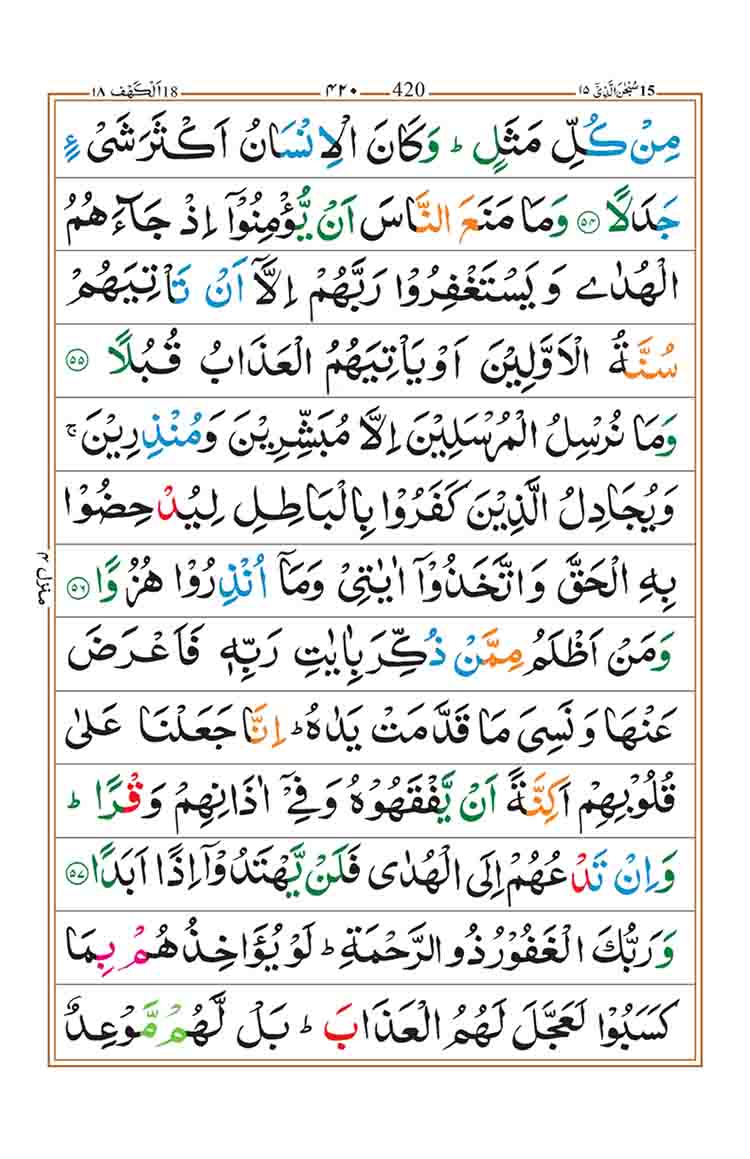 15 سُبْحٰنَ الَّذِیْٓ ۱۵ 420 ۴۲۰ 18 اَلْکَهْف ۱۸
مِنْ كُلِّ مَثَلٍ ؕ وَكَانَ الْاِنْسَانُ اَكْثَرَ شَیْءٍ
جَدَلًا ۵۴ وَمَا مَنَعَ النَّاسَ اَنْ یُّؤْمِنُوْۤا اِذْ جَآءَهُمُ
الْهُدٰی وَیَسْتَغْفِرُوْا رَبَّهُمْ اِلَّاۤ اَنْ تَاْتِیَهُمْ
سُنَّةُ الْاَوَّلِیْنَ اَوْ یَاْتِیَهُمُ الْعَذَابُ قُبُلًا ۵۵
وَمَا نُرْسِلُ الْمُرْسَلِیْنَ اِلَّا مُبَشِّرِیْنَ وَمُنْذِرِیْنَ ۚ
وَیُجَادِلُ الَّذِیْنَ كَفَرُوْا بِالْبَاطِلِ لِیُدْحِضُوْا
بِهِ الْحَقَّ وَاتَّخَذُوْۤا اٰیٰتِیْ وَمَاۤ اُنْذِرُوْا هُزُوًا ۵۶
وَمَنْ اَظْلَمُ مِمَّنْ ذُكِّرَ بِاٰیٰتِ رَبِّهٖ فَاَعْرَضَ
عَنْهَا وَنَسِیَ مَا قَدَّمَتْ یَدٰهُ ؕ اِنَّا جَعَلْنَا عَلٰی
قُلُوْبِهِمْ اَكِنَّةً اَنْ یَّفْقَهُوْهُ وَفِیْۤ اٰذَانِهِمْ وَقْرًا ؕ
وَاِنْ تَدْعُهُمْ اِلَی الْهُدٰی فَلَنْ یَّهْتَدُوْۤا اِذًا اَبَدًا ۵۷
وَرَبُّكَ الْغَفُوْرُ ذُو الرَّحْمَةِ ؕ لَوْ یُؤَاخِذُهُمْ بِمَا
كَسَبُوْا لَعَجَّلَ لَهُمُ الْعَذَابَ ؕ بَلْ لَّهُمْ مَّوْعِدٌ
منزل ۴